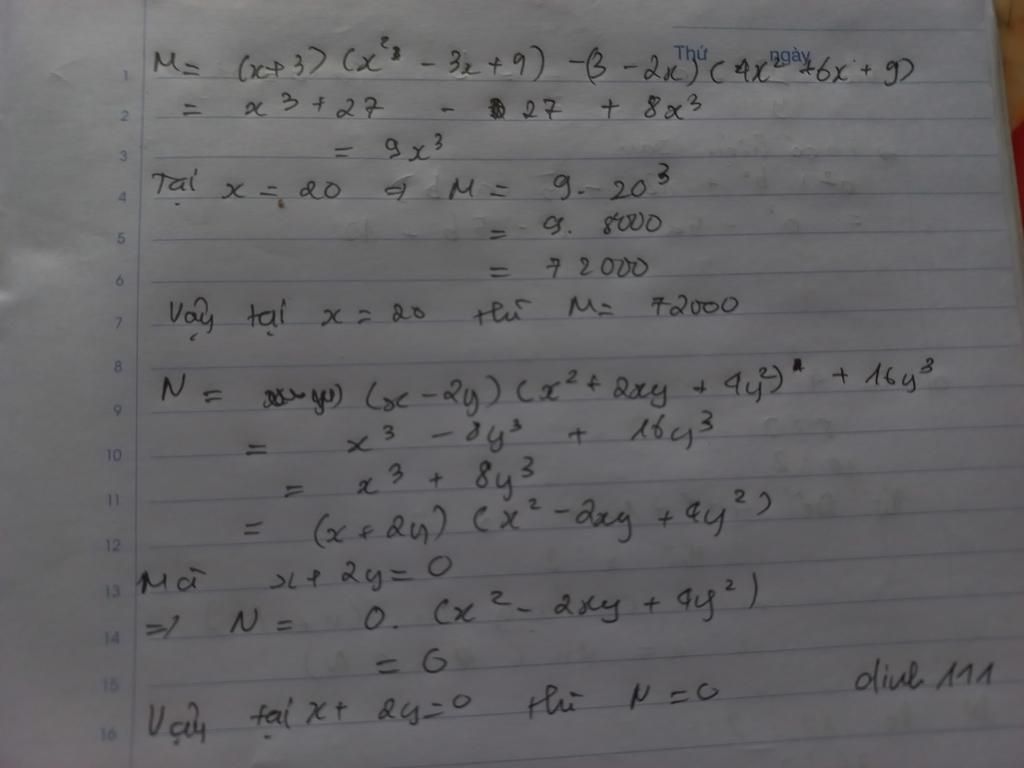 Thứ ngày
1 M = (x+3) (x² - 3x + 9) - (3 - 2x) (4x² + 6x + 9)
2 = x³ + 27 - 27 + 8x³
3 = 9x³
4 Tại x = 20 ⇒ M = 9. 20³
5 = 9. 8000
6 = 72000
7 Vậy tại x = 20 thì M = 72000
8
9 N = (x - 2y) (x² + 2xy + 4y²) + 16y³
10 = x³ - 8y³ + 16y³
11 = x³ + 8y³
12 = (x + 2y) (x² - 2xy + 4y²)
13 Mà x + 2y = 0
14 ⇒ N = 0. (x² - 2xy + 4y²)
15 = 0
16 Vậy tại x + 2y = 0 thì N = 0 dinh 111